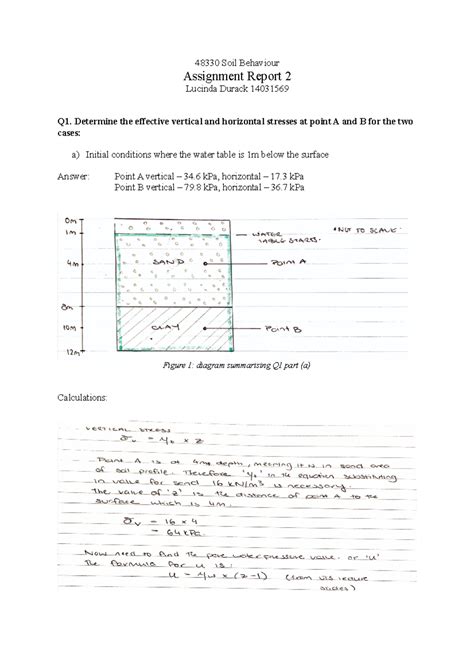 48330 Soil Behaviour
Assignment Report 2
Lucinda Durack 14031569
Q1. Determine the effective vertical and horizontal stresses at point A and B for the two
cases:
a) Initial conditions where the water table is 1m below the surface
Answer: Point A vertical – 34.6 kPa, horizontal – 17.3 kPa
Point B vertical – 79.8 kPa, horizontal – 36.7 kPa
0m
1m
WATER TABLE STARTS.
*NOT TO SCALE*
4m
SAND
POINT A
8m
10m
CLAY
POINT B
12m
Figure 1: diagram summarising Q1 part (a)
Calculations:
VERTICAL STRESS
= γ x z
Point A is at 4m depth, meaning it is in sand area
of soil profile. Therefore in the equation substituting
in value for sand 16 kN/m³ is necessary.
The value of 'z' is the distance of point A to the
surface which is 4m.
σv = 16 x 4
= 64 kPa.
Now need to find the pore water pressure value or 'u'
The formula for u is:
u = γw x (z-1) (from U1S lecture
notes)